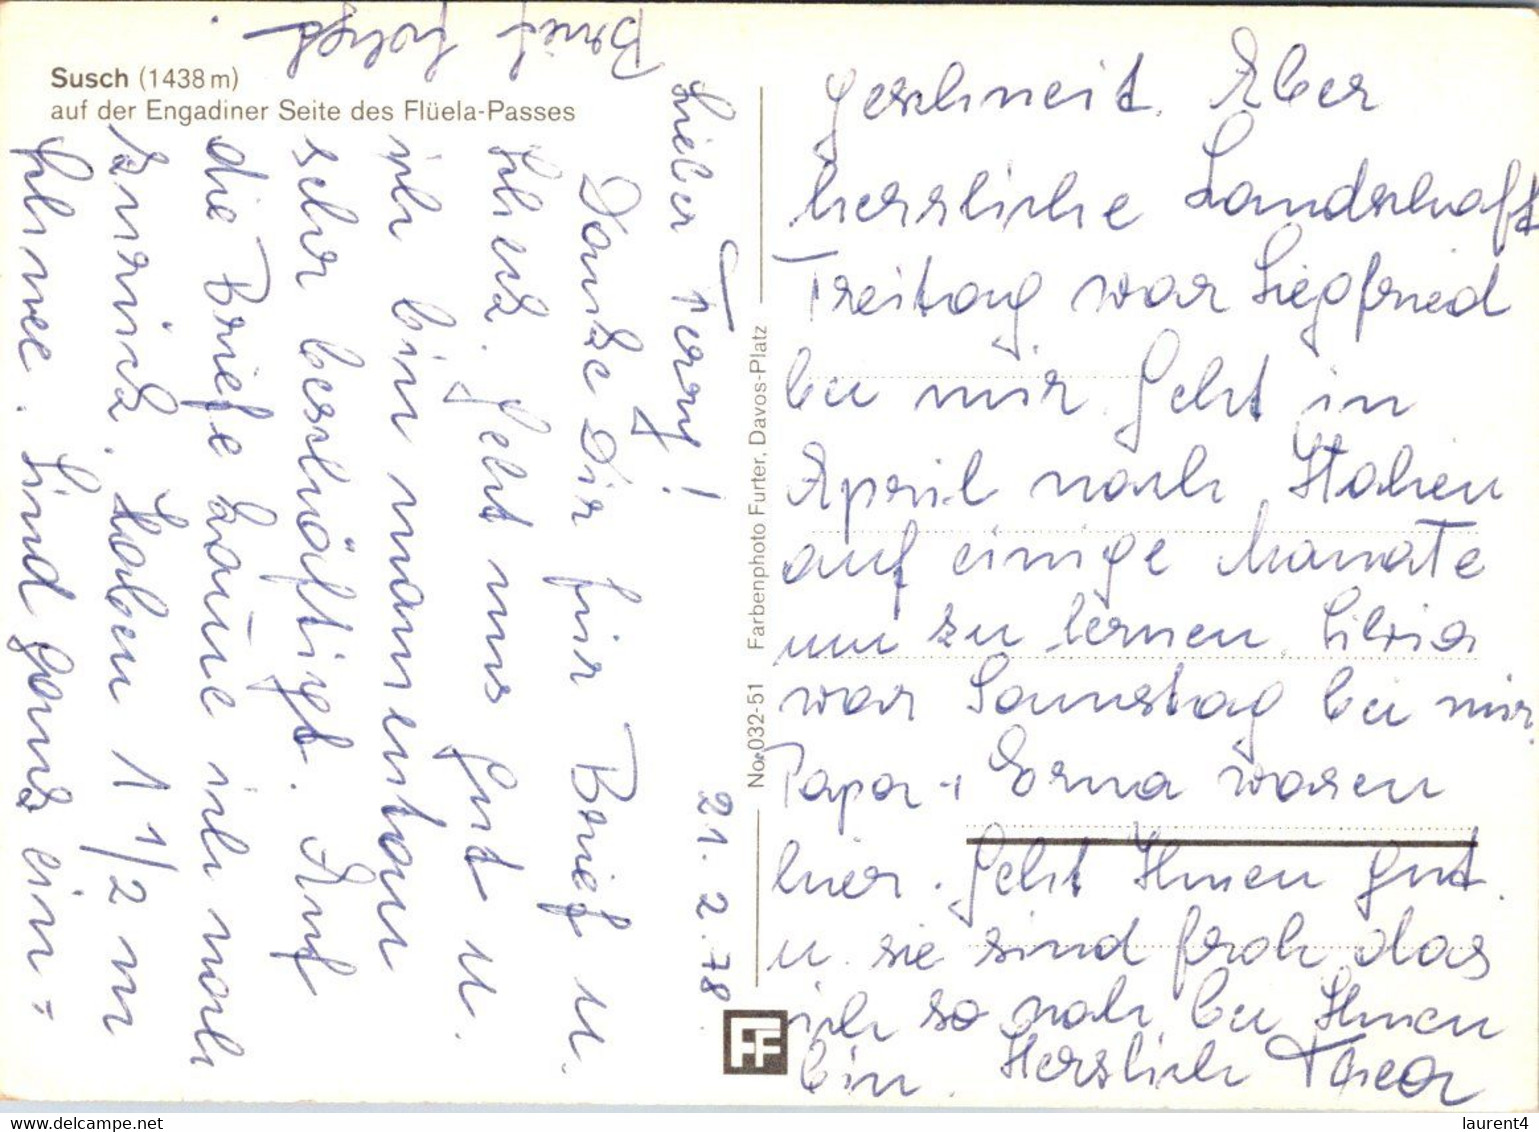 Susch (1438 m)
auf der Engadiner Seite des Flüela-Passes
No. 032-51 Farbenphoto Furter, Davos-Platz
FF
21.2.78.
Lieber Ferry!
Danke Dir für Brief u.
Scheck. Geht uns gut u.
ich bin momentan
sehr beschäftigt. Auf
die Briefe komme ich noch
zurück. Haben 1 1/2 m
Schnee. Sind ganz ein=
geschneit. Aber
herrliche Landschaft
Freitag war Siegfried
bei mir. Geht in
April nach Italien
auf einige Monate
um zu lernen. Silvia
war Samstag bei mir.
Papa + Erna waren
hier. Geht Ihnen gut.
u. sie sind froh das
ich so nah bei Ihnen
bin. Herzlich Thea
Brief folgt.
laurent4